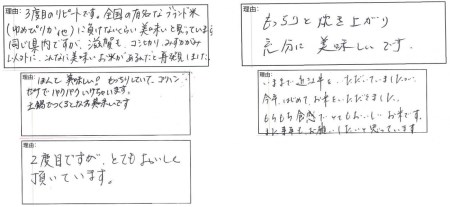 理由:
3度目のリピートです。全国の有名なブランド米
(ゆめぴりか他)に負けないくらい美味いと思っています
同じ県内ですが、滋賀も、コシヒカリ、みずかがみ
こんなに美味いお米があるんだと再発見しました。
理由:
もっちりと炊き上がり
充分に美味しいです。
理由:
ほんと美味しい! もっちりしていて、
だけでパクパクいけちゃいます。
土鍋でつくるとなお美味いです
理由:
いままで近江牛を いただいていましたが、
今年、はじめてお米をいただきました。
もちもち食感でとてもおいしいお米です。
また来年もお願いしたいと思っています
理由:
2度目ですが、とてもおいしく
頂いています。